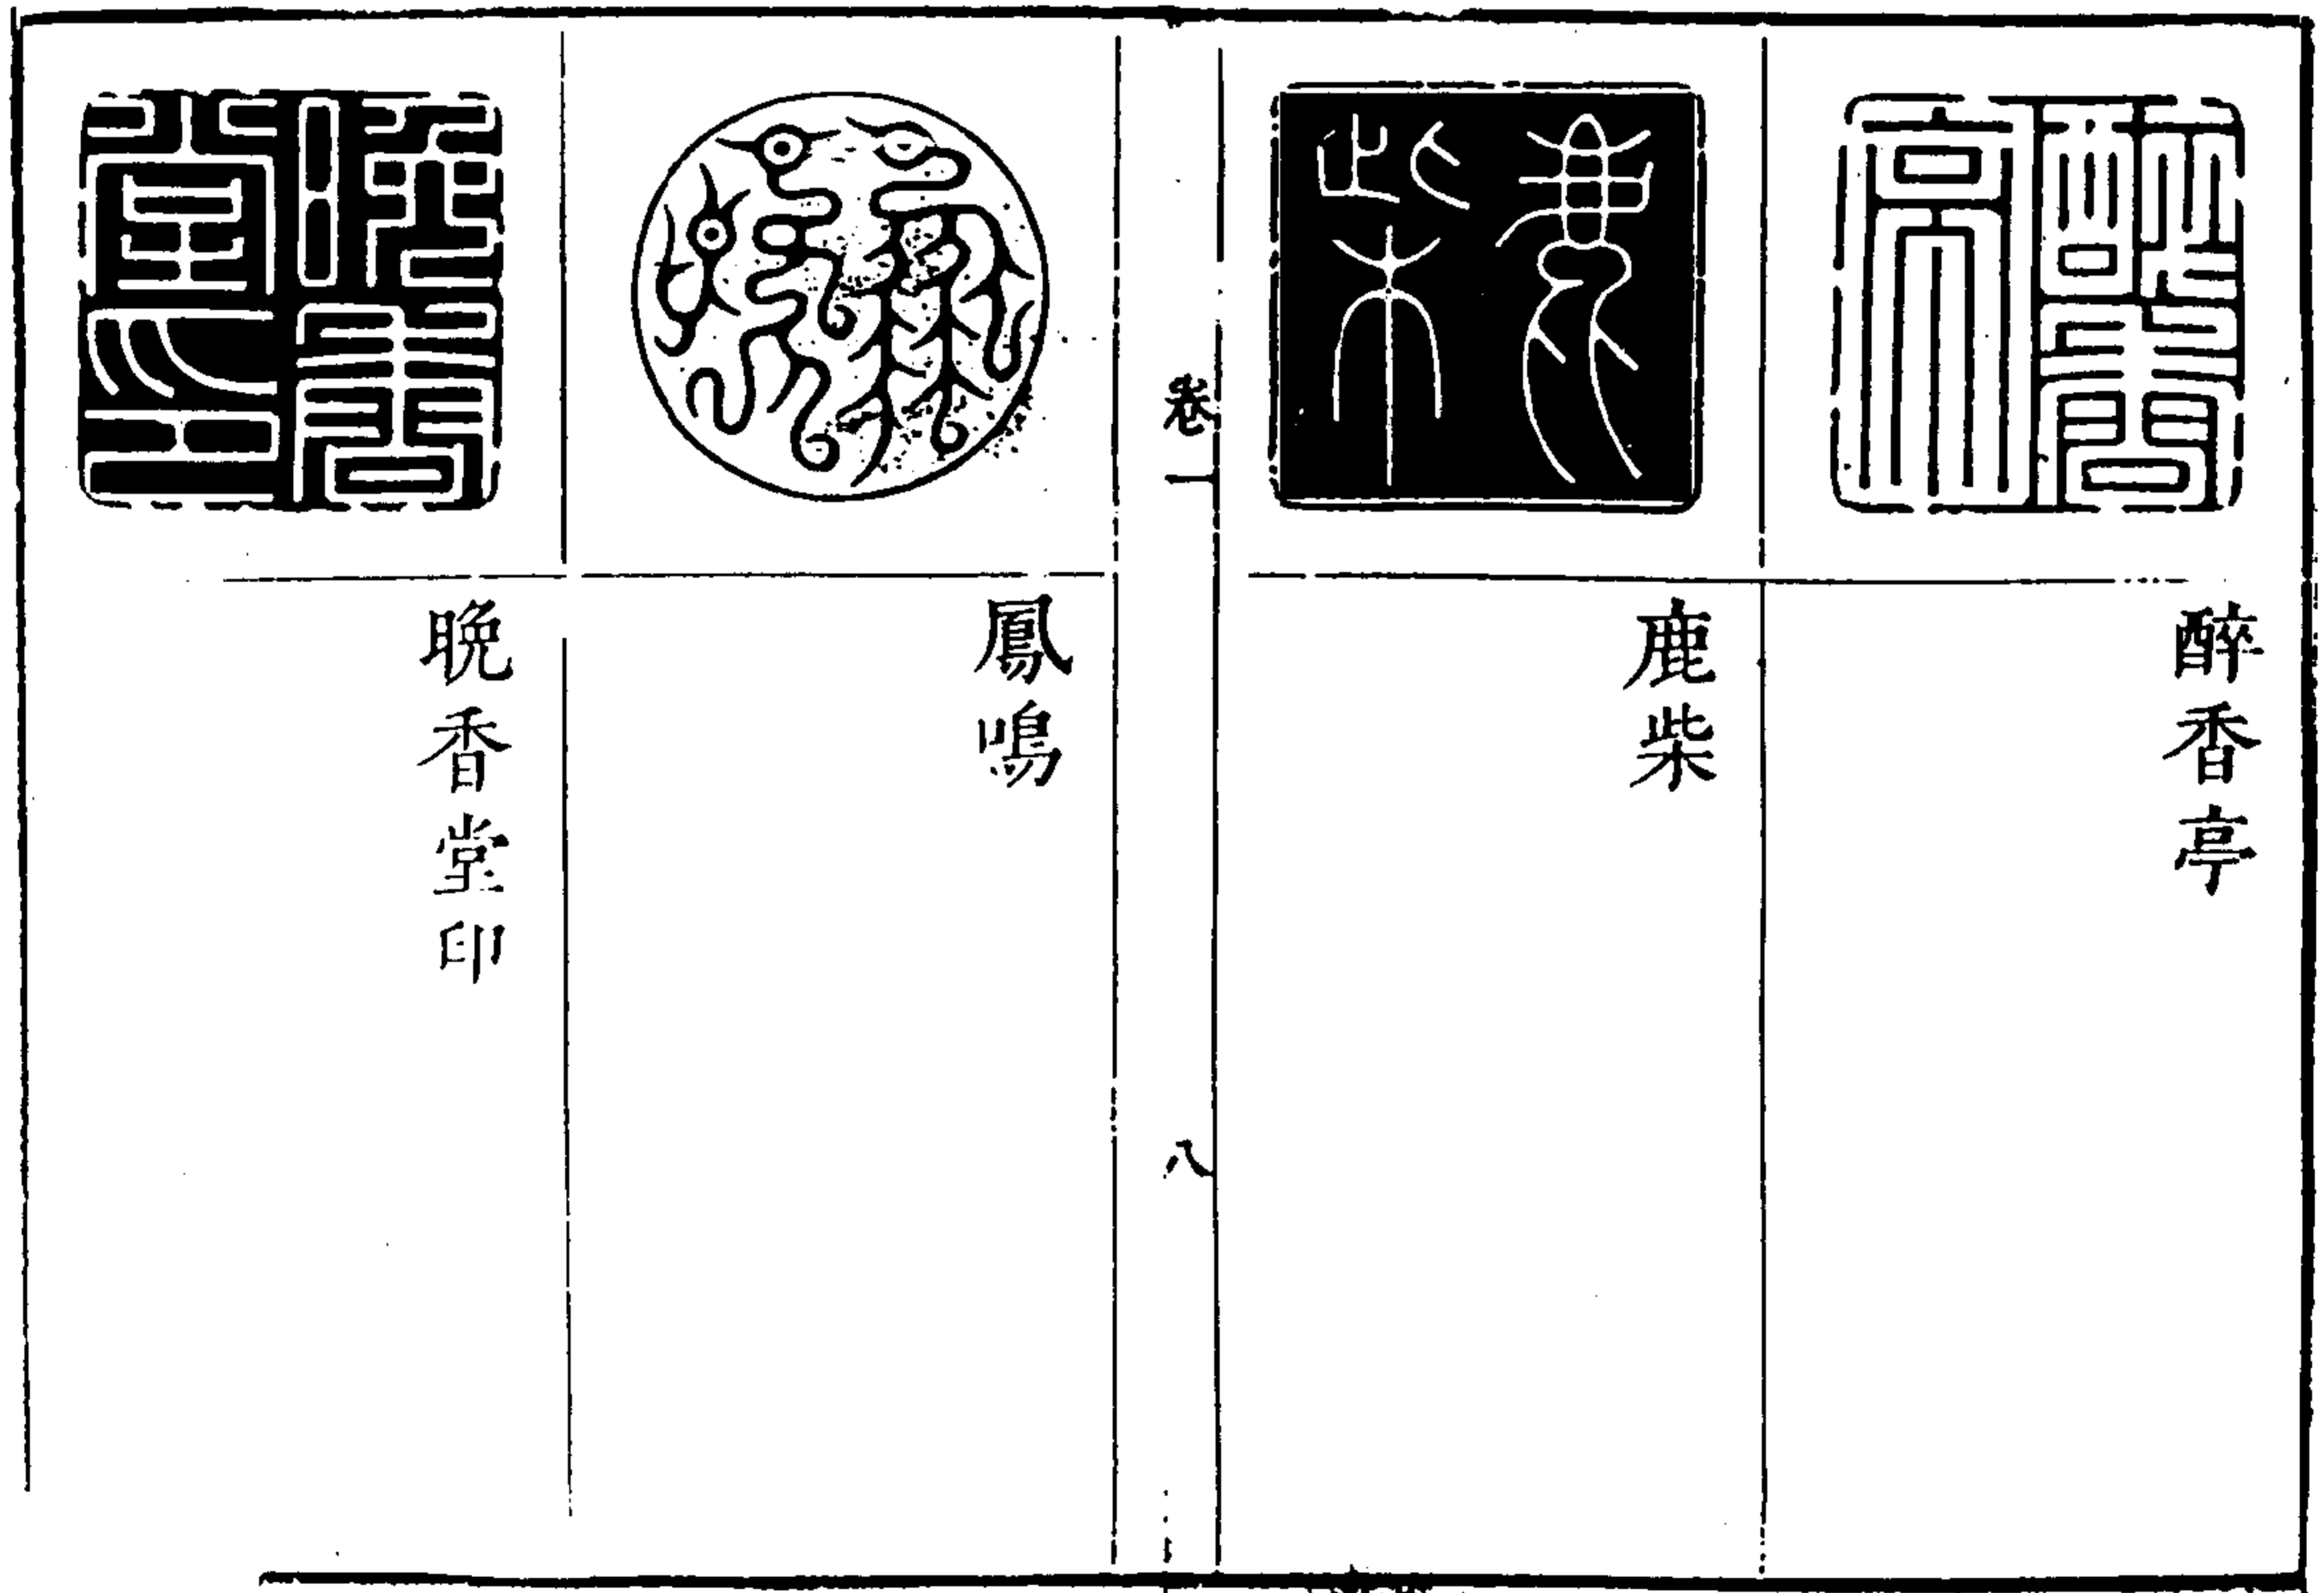 醉香亭
鹿柴
卷一
八
鳳鳴
晩香堂印